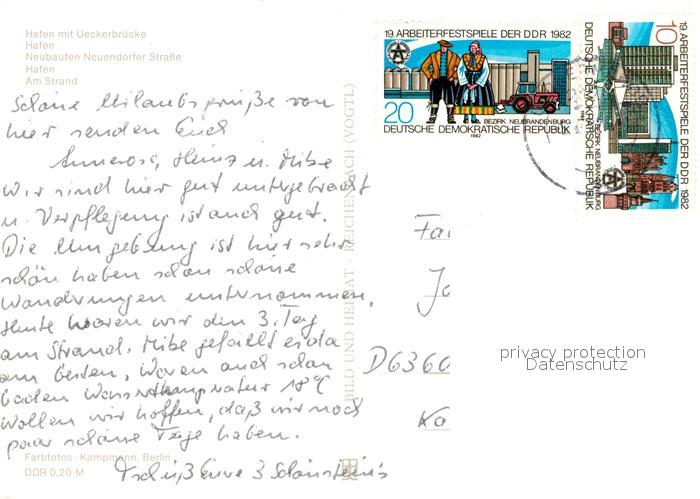 Hafen mit Ueckerbrücke
Hafen
Neubauten Neuendorfer Straße
Hafen
Am Strand
Schöne Urlaubsgrüße von
hier senden Euch
Annerose, Heinz u. Mibe
Wir sind hier gut untergebracht
u. Verpflegung ist auch gut.
Die Umgebung ist hier sehr
schön haben schon schöne
Wandrungen unternommen.
Heute waren wir den 3. Tag
am Strand. Mibe gefällt es da
am besten, waren auch schon
baden Wassertemperatur 18°C
Wollen wir hoffen, daß wir noch
paar schöne Tage haben.
Tschüß Eure 3 Schönstein's
Farbfotos: Kampmann, Berlin
DDR 0,20 M
BILD UND HEIMAT · REICHENBACH (VOGTL)
19. ARBEITERFESTSPIELE DER DDR 1982
20
BEZIRK NEUBRANDENBURG
DEUTSCHE DEMOKRATISCHE REPUBLIK
1982
19. ARBEITERFESTSPIELE DER DDR 1982
10
BEZIRK NEUBRANDENBURG
DEUTSCHE DEMOKRATISCHE REPUBLIK
D6360
privacy protection
Datenschutz